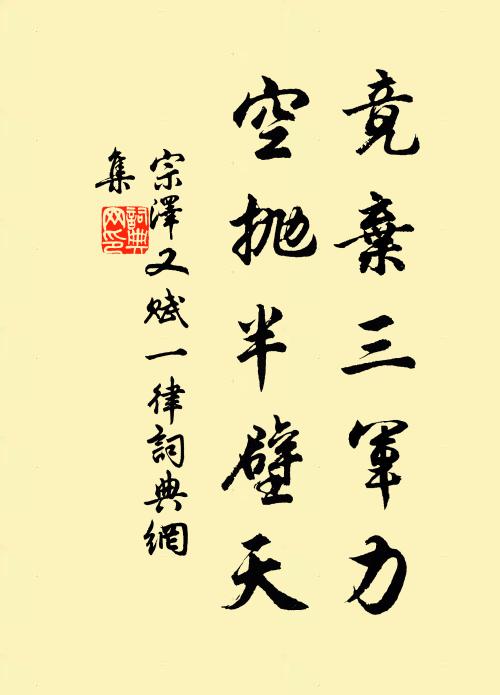 竟棄三軍力
空抛半壁天
宗澤又赋一律詞典網
集
詞典
网印